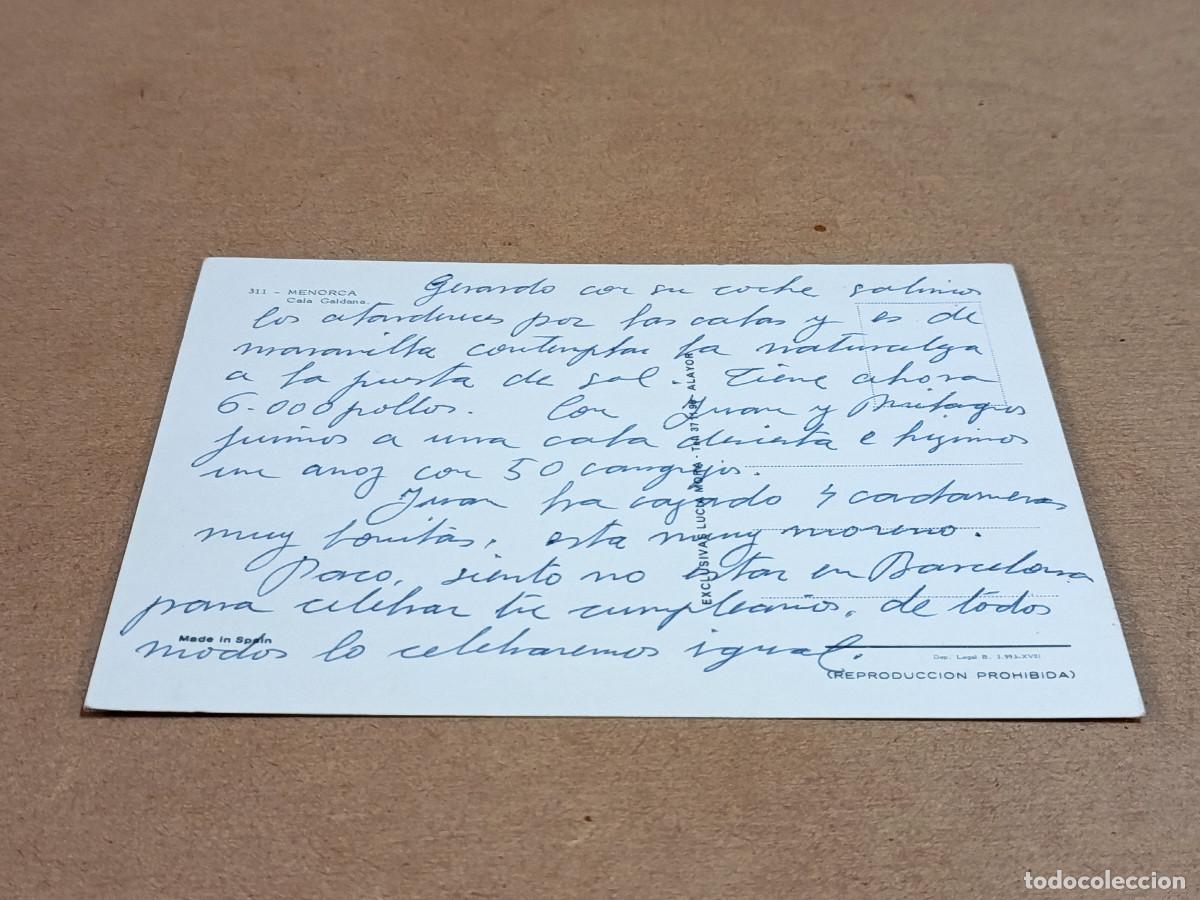 311 - MENORCA
Cala Galdana.
Gerardo con su coche salimos
los atardeceres por las calas y es de
maravilla contemplar la naturaleza
a la puesta de sol. Tiene ahora
6.000 pollos. Con Juan y Milagros
fuimos a una cala desierta e hizimos
un arroz con 50 cangrejos.
Juan ha cazado 4
muy bonitas, esta muy moreno.
Paco, siento no estar en Barcelona
para celebrar tu cumpleaños, de todos
modos lo celebraremos igual.
EXCLUSIVAS LUCIA MORA - ALAYOR
Made in Spain
Dep. Legal B.
(REPRODUCCION PROHIBIDA)
todocoleccion